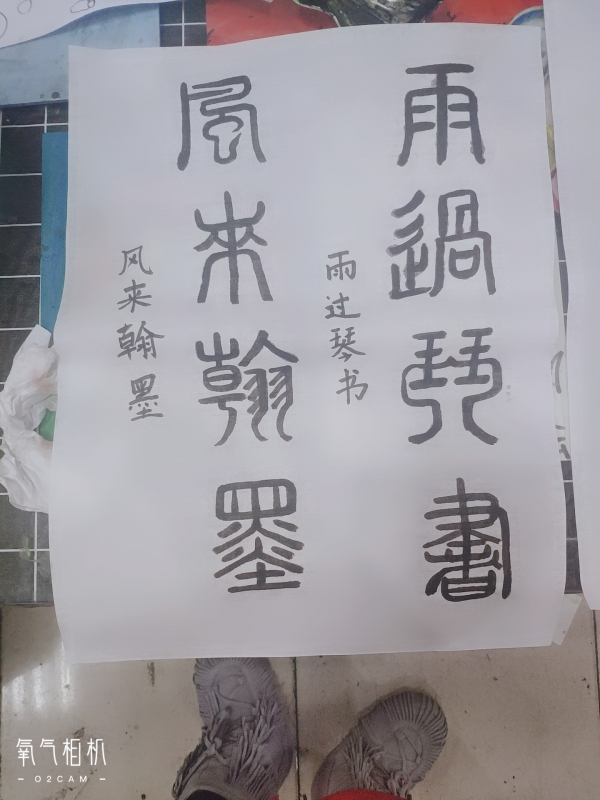 雨過琴書
雨过琴书
風來翰墨
风来翰墨
氧气相机
O2CAM